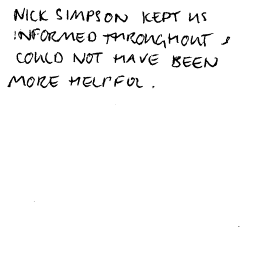 NICK SIMPSON KEPT US
INFORMED THROUGHOUT &
COULD NOT HAVE BEEN
MORE HELPFUL.